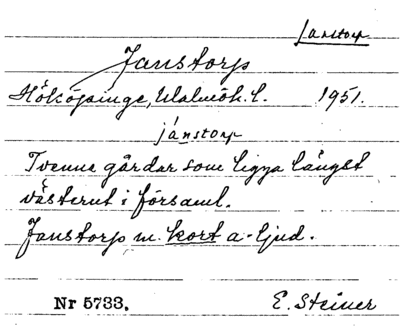 Janstorp
Janstorp
Hököpinge, Malmöh. l. 1951.
jánstorp
Tvenne gårdar som ligga längst
västerut i församl.
Janstorp m. kort a-ljud.
Nr 5733. E. Steiner